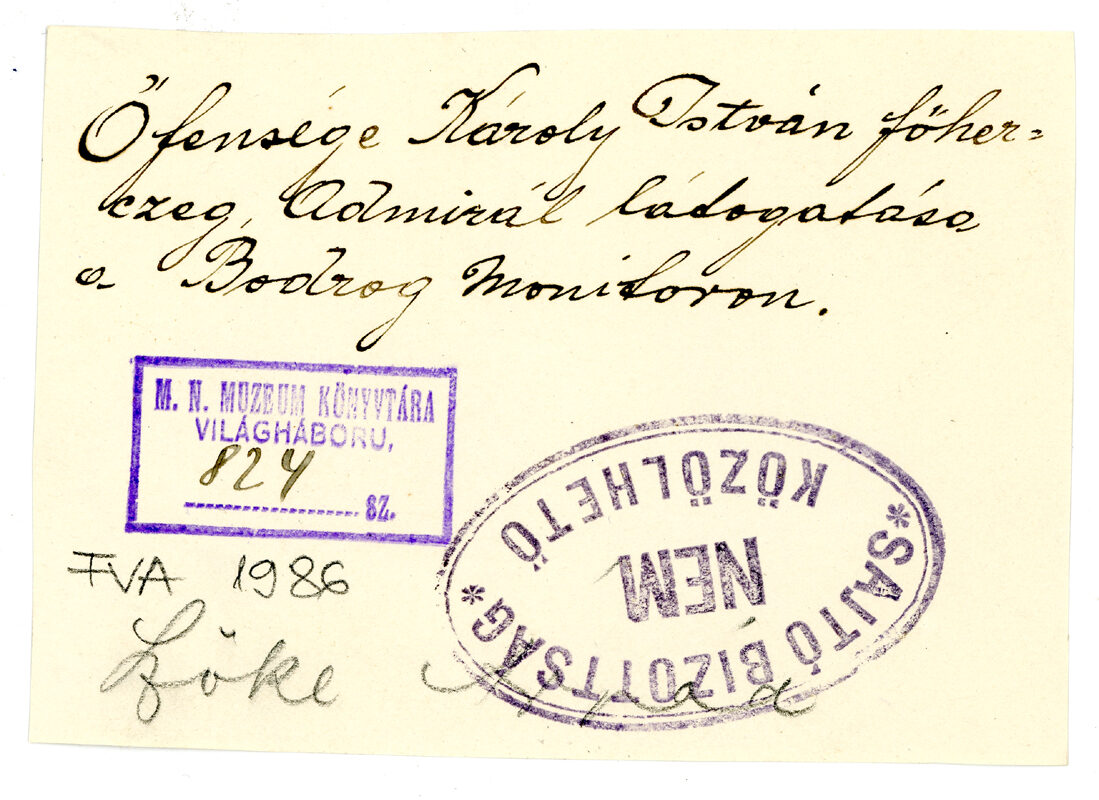 Őfensége Károly István főher=
czeg, Admirál látogatása
a Bodrog Monitoron.
M. N. MUZEUM KÖNYVTÁRA
VILÁGHÁBORU,
824
sz.
*SAJTÓ BIZOTTSÁG*
NEM
KÖZÖLHETŐ
FVA 1986
Szőke Árpád